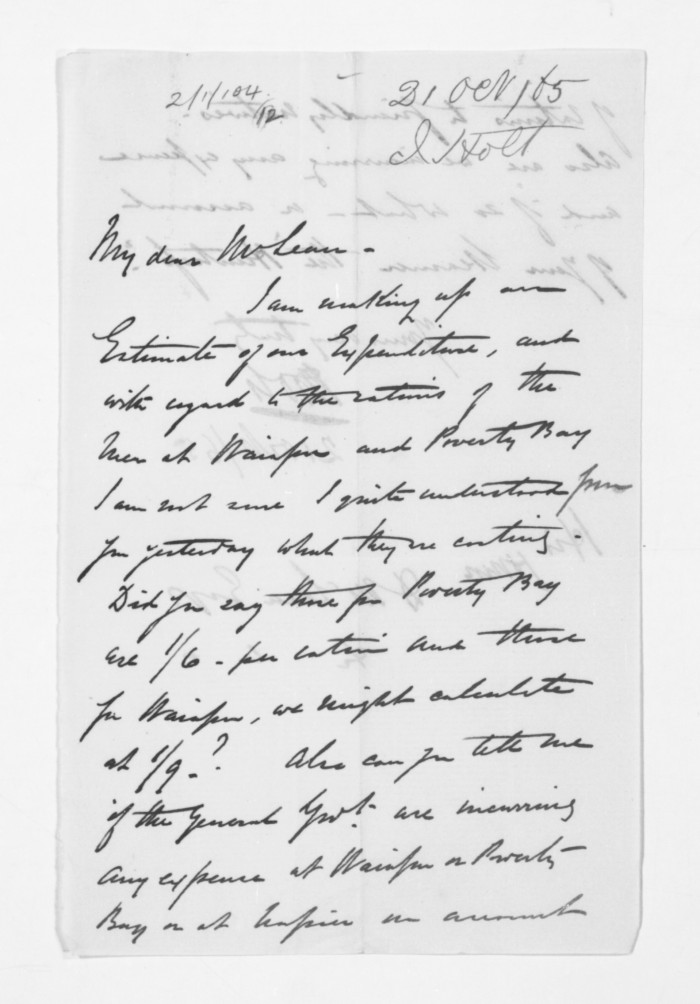 2/1/104
/12
21 Oct /65
J Holt
My dear McLean -
I am making up an
Estimate of our Expenditure, and
with regard to the rations of the
Men at Waiapu and Poverty Bay
I am not sure I quite understood from
you yesterday what they're costing -
Did you say those for Poverty Bay
are 1/6 - per ration and those
for Waiapu, we might calculate
at 1/9 - ? Also can you tell me
if the General Govt. are incurring
any expense at Waiapu or Poverty
Bay or at Napier on account